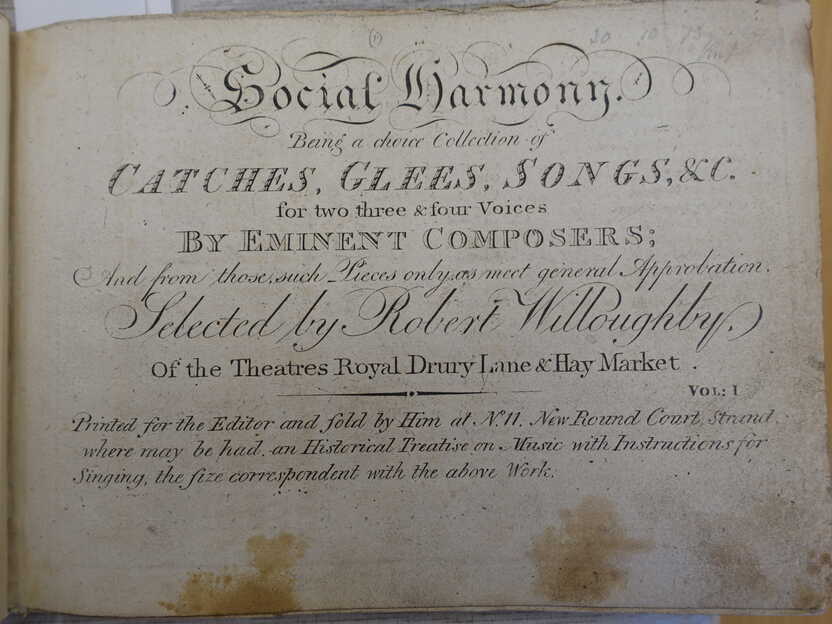 (1)
30 10 73
Social Harmony.
Being a choice Collection of
CATCHES, GLEES, SONGS, &C.
for two three & four Voices
BY EMINENT COMPOSERS;
And from those, such Pieces only, as meet general Approbation.
Selected by Robert Willoughby.
Of the Theatres Royal Drury Lane & Hay Market.
VOL: I
Printed for the Editor and ſold by Him at No. 11, New Round Court, Strand,
where may be had, an Historical Treatise on Music with Instructions for
Singing, the ſize correspondent with the above Work.